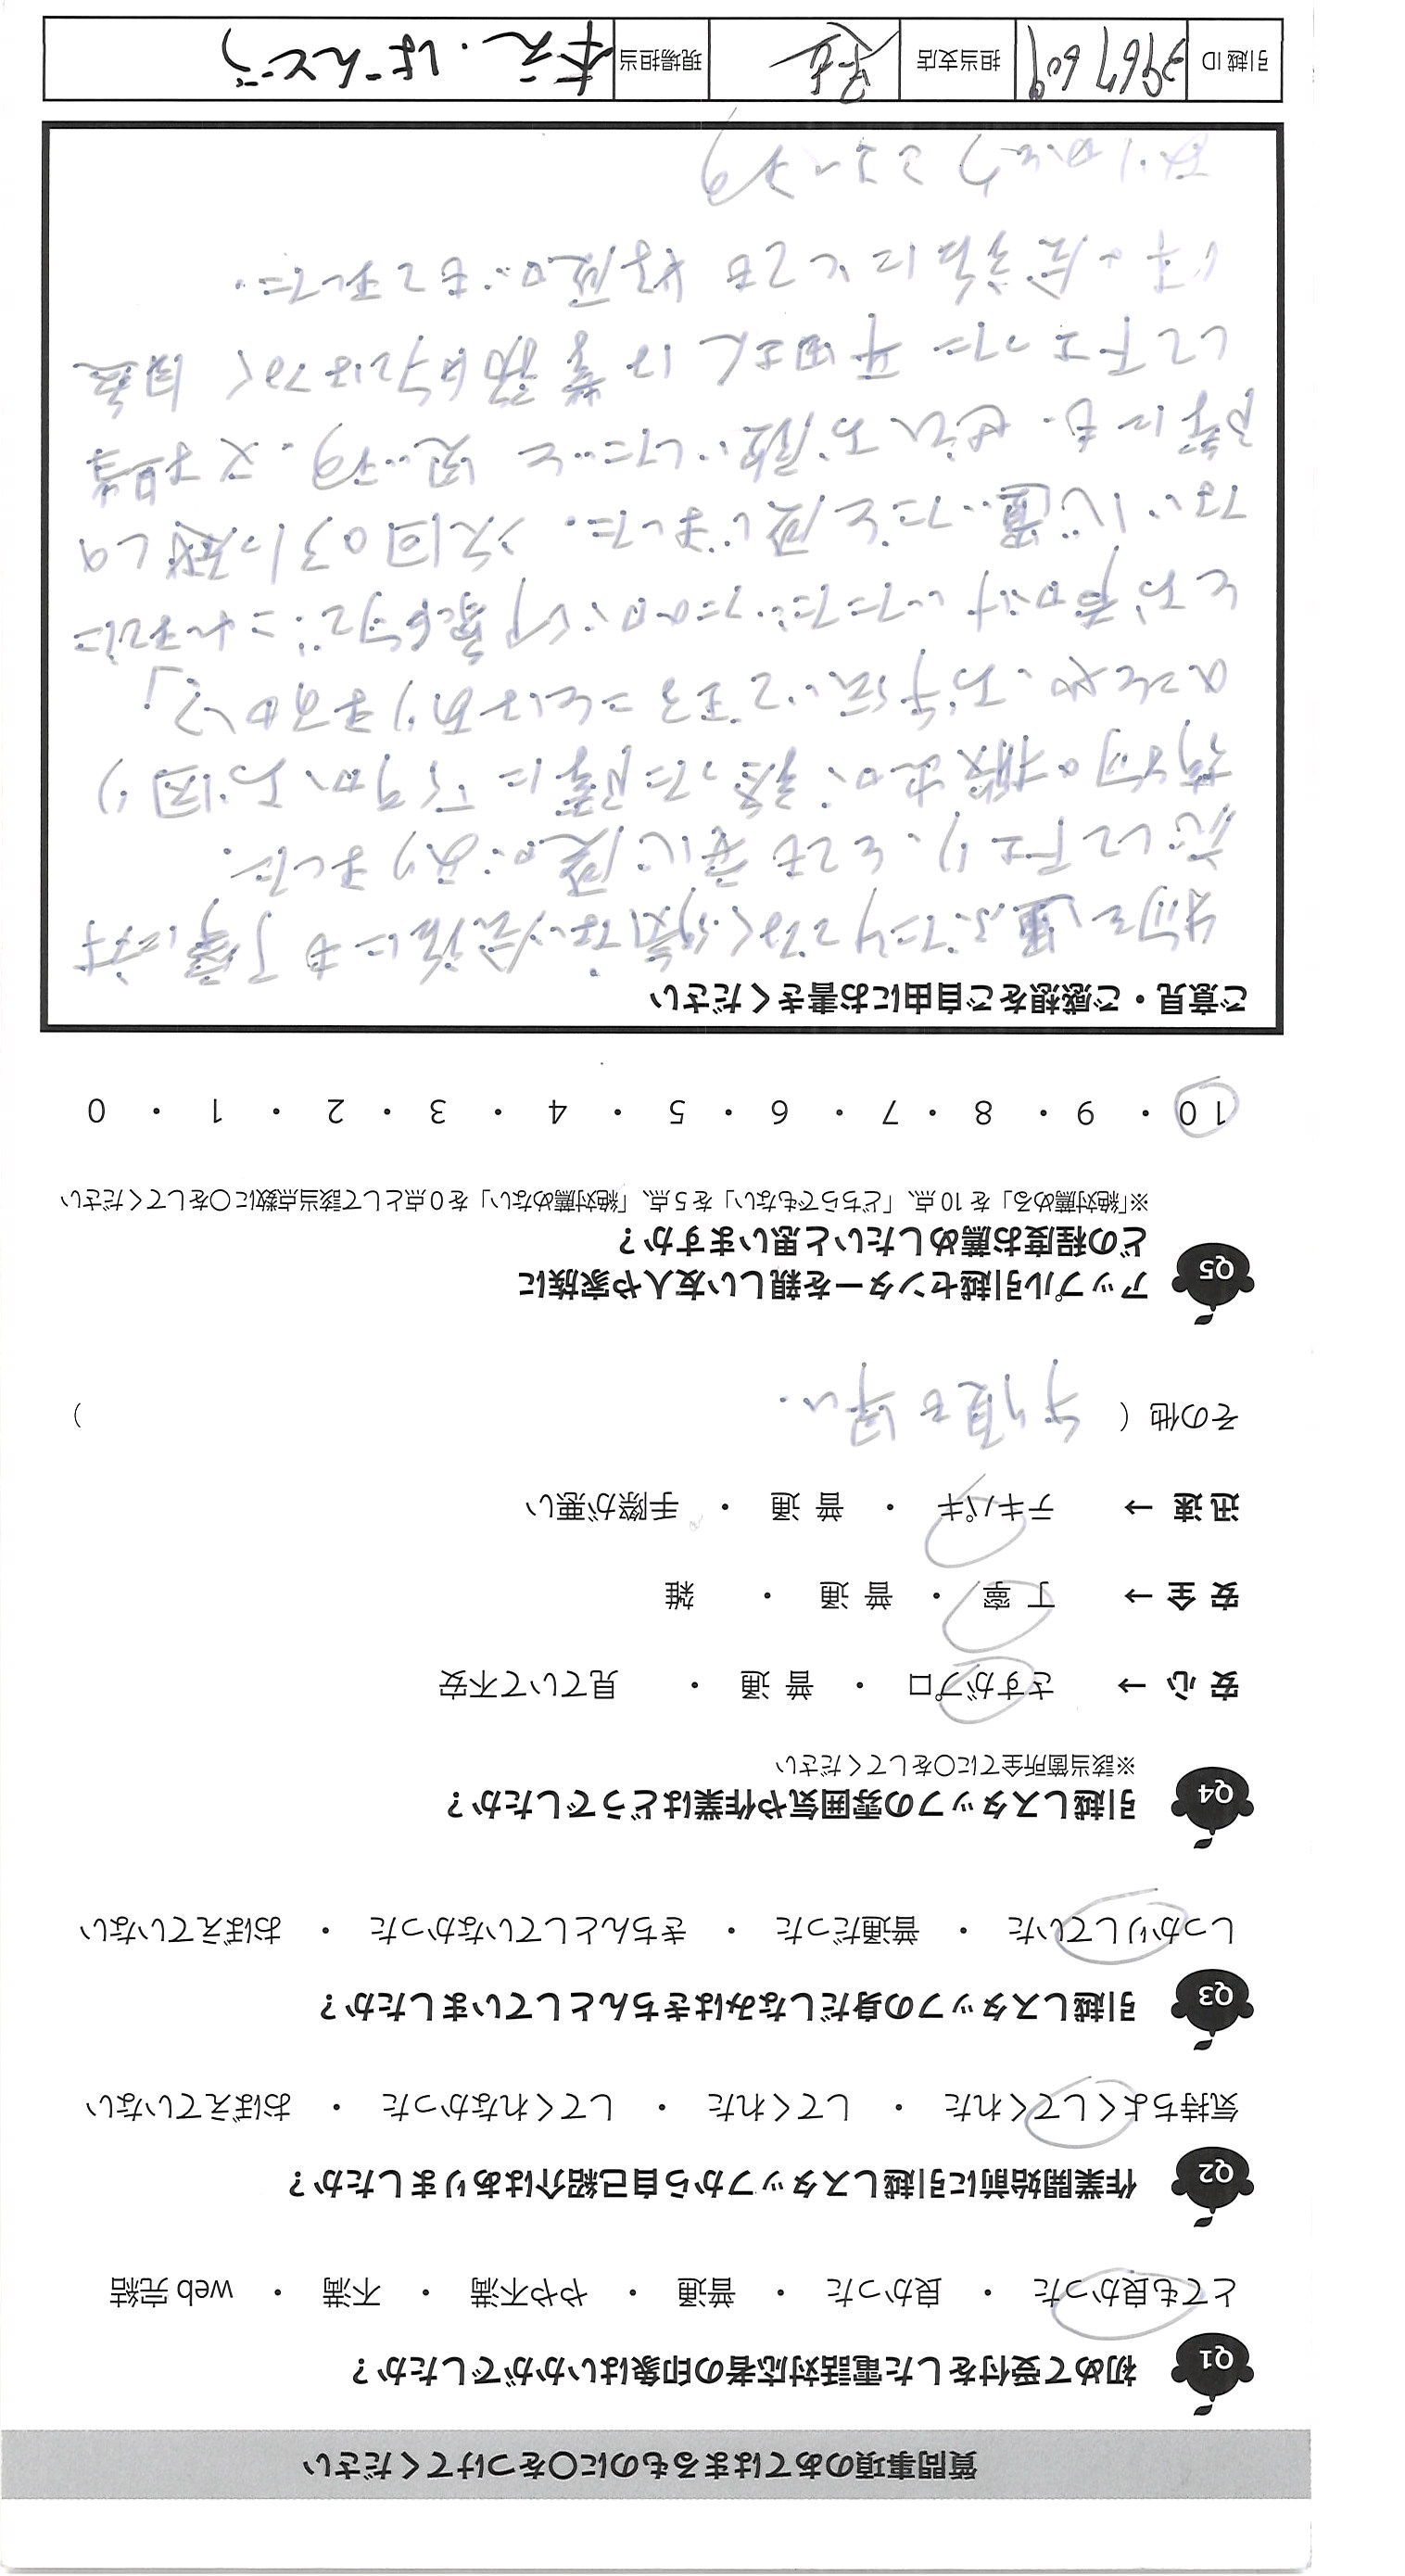 質問事項のあてはまるものに〇をつけてください
Q1 初めて受付をした電話対応者の印象はいかがでしたか？
とても良かった ・ 良かった ・ 普通 ・ やや不満 ・ 不満 ・ web 完結
Q2 作業開始前に引越しスタッフから自己紹介はありましたか？
気持ちよくしてくれた ・ してくれた ・ してくれなかった ・ おぼえていない
Q3 引越しスタッフの身だしなみはきちんとしていましたか？
しっかりしていた ・ 普通だった ・ きちんとしていなかった ・ おぼえていない
Q4 引越しスタッフの雰囲気や作業はどうでしたか？
※該当箇所全てに〇をしてください
安 心 → さすがプロ ・ 普 通 ・ 見ていて不安
安 全 → 丁 寧 ・ 普 通 ・ 雑
迅 速 → テキパキ ・ 普 通 ・ 手際が悪い
その他（ 手順も早い. ）
Q5 アップル引越センターを親しい友人や家族に
どの程度お薦めしたいと思いますか？
※「絶対薦める」を 10 点、「どちらでもない」を 5 点、「絶対薦めない」を 0 点として該当点数に〇をしてください
10 ・ 9 ・ 8 ・ 7 ・ 6 ・ 5 ・ 4 ・ 3 ・ 2 ・ 1 ・ 0
ご意見・ご感想をご自由にお書きください
物を運ぶだけでなく何気ない会話にも丁寧に対
応して下さり、とても安心感がありました.
荷物の搬出が終った際に「何かお困り
のことや、お手伝いできることはありますか？」
とお声かけいただいたのが印象的で、これまでに
ない心遣いだと感じました. 次回の引っ越しの
際にも、ぜひお願いしたいと思います. 又、担当
して下さった 田さんは 的ではなく自然
な会話にとても好感がもてました.
ありがとうございます
引越 ID 3967609 担当支店 現場担当 ・ばんどう